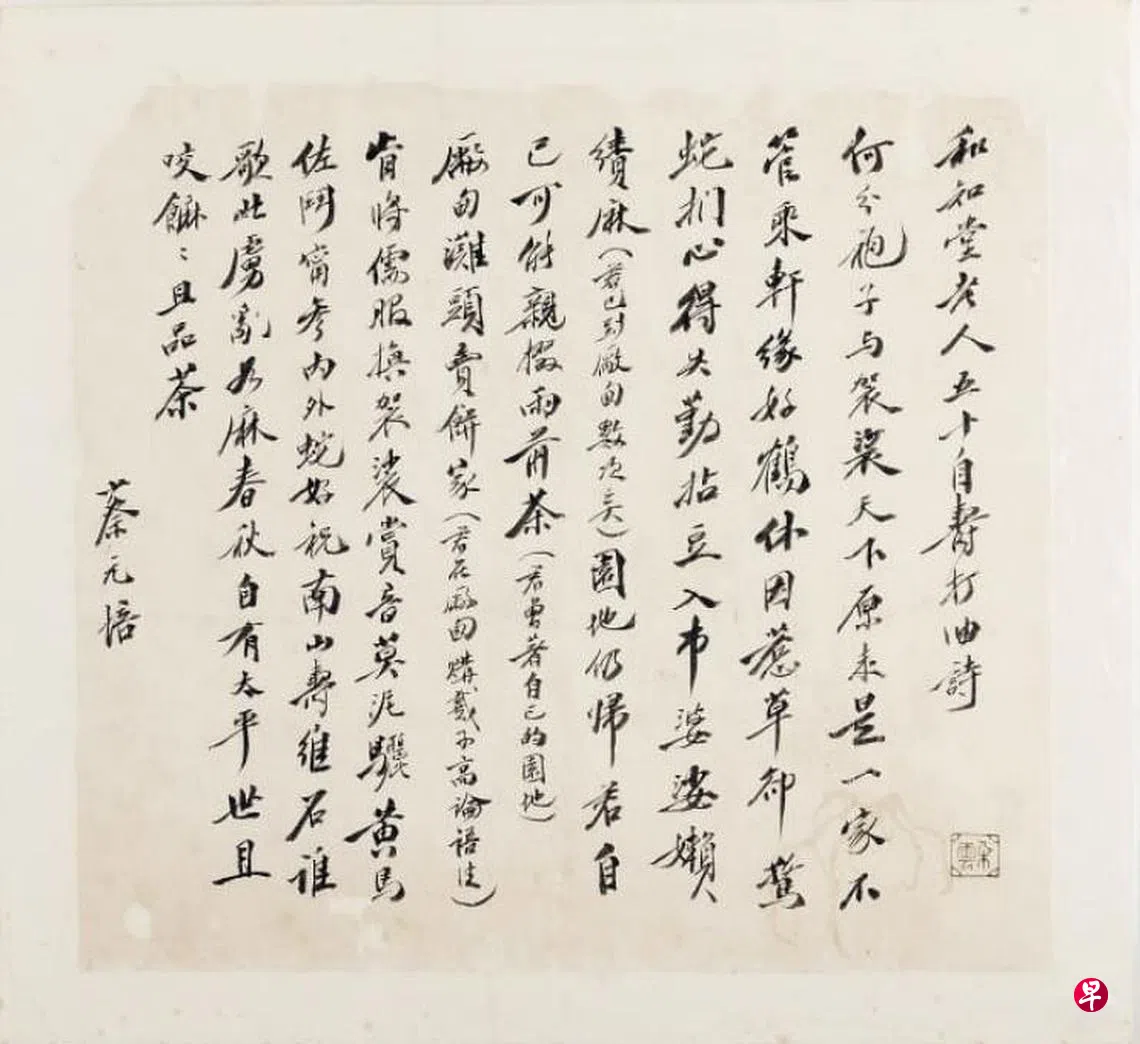 和知堂老人五十自壽打油詩
何分袍子与袈裟天下原来是一家不
管乘軒緣好鶴休因惹草却驚
蛇捫心得失勤拈豆入市婆娑懶
績麻（君已到廠甸數次矣）園地仍帰君自
己可能親掇雨前茶（君曾著自己的園地）
廠甸灘頭賣餅家（君在廠甸購戴子高論語注）
肯將儒服換袈裟賞音莫泥驪黃馬
佐鬥甯參內外蛇好祝南山壽維石誰
歌北虜亂如麻春秋自有太平世且
咬饝〻且品茶
蔡元培
早